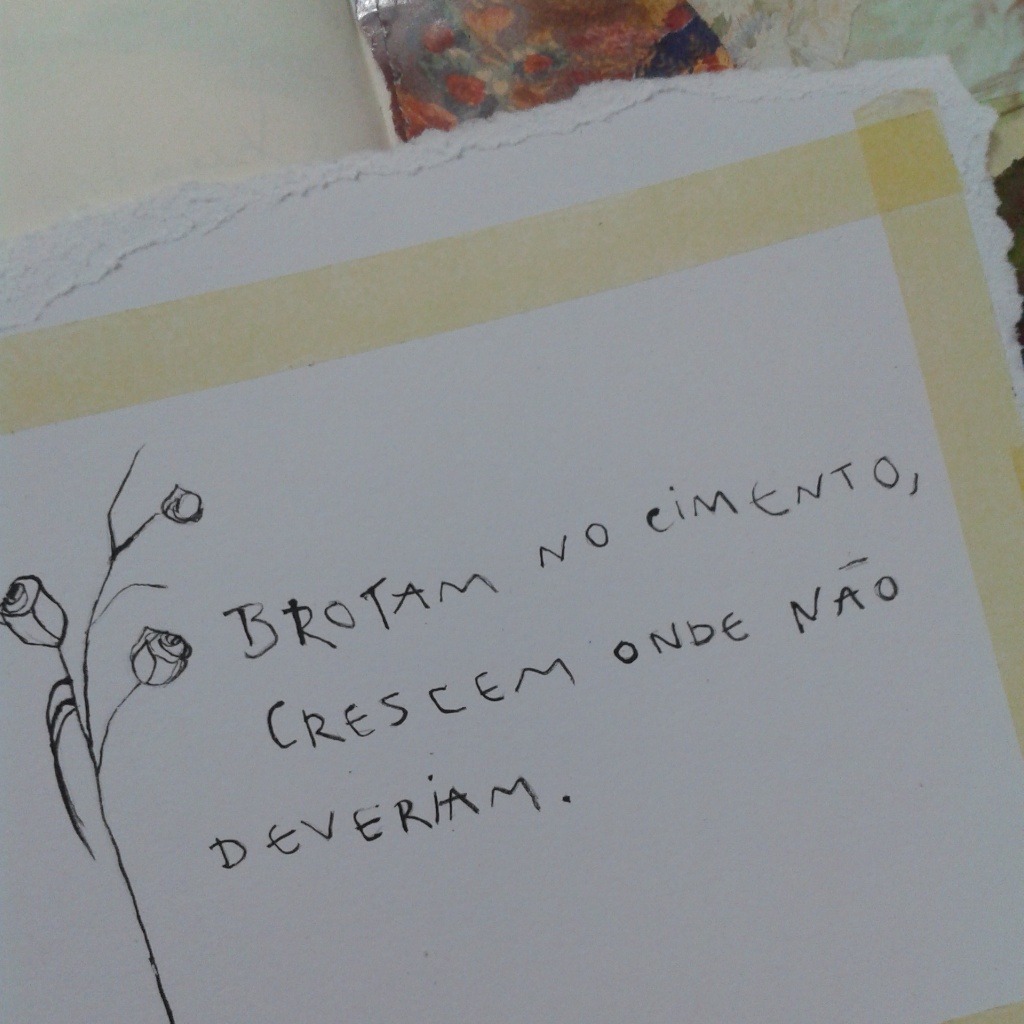 BROTAM NO CIMENTO,
CRESCEM ONDE NÃO
DEVERIAM.